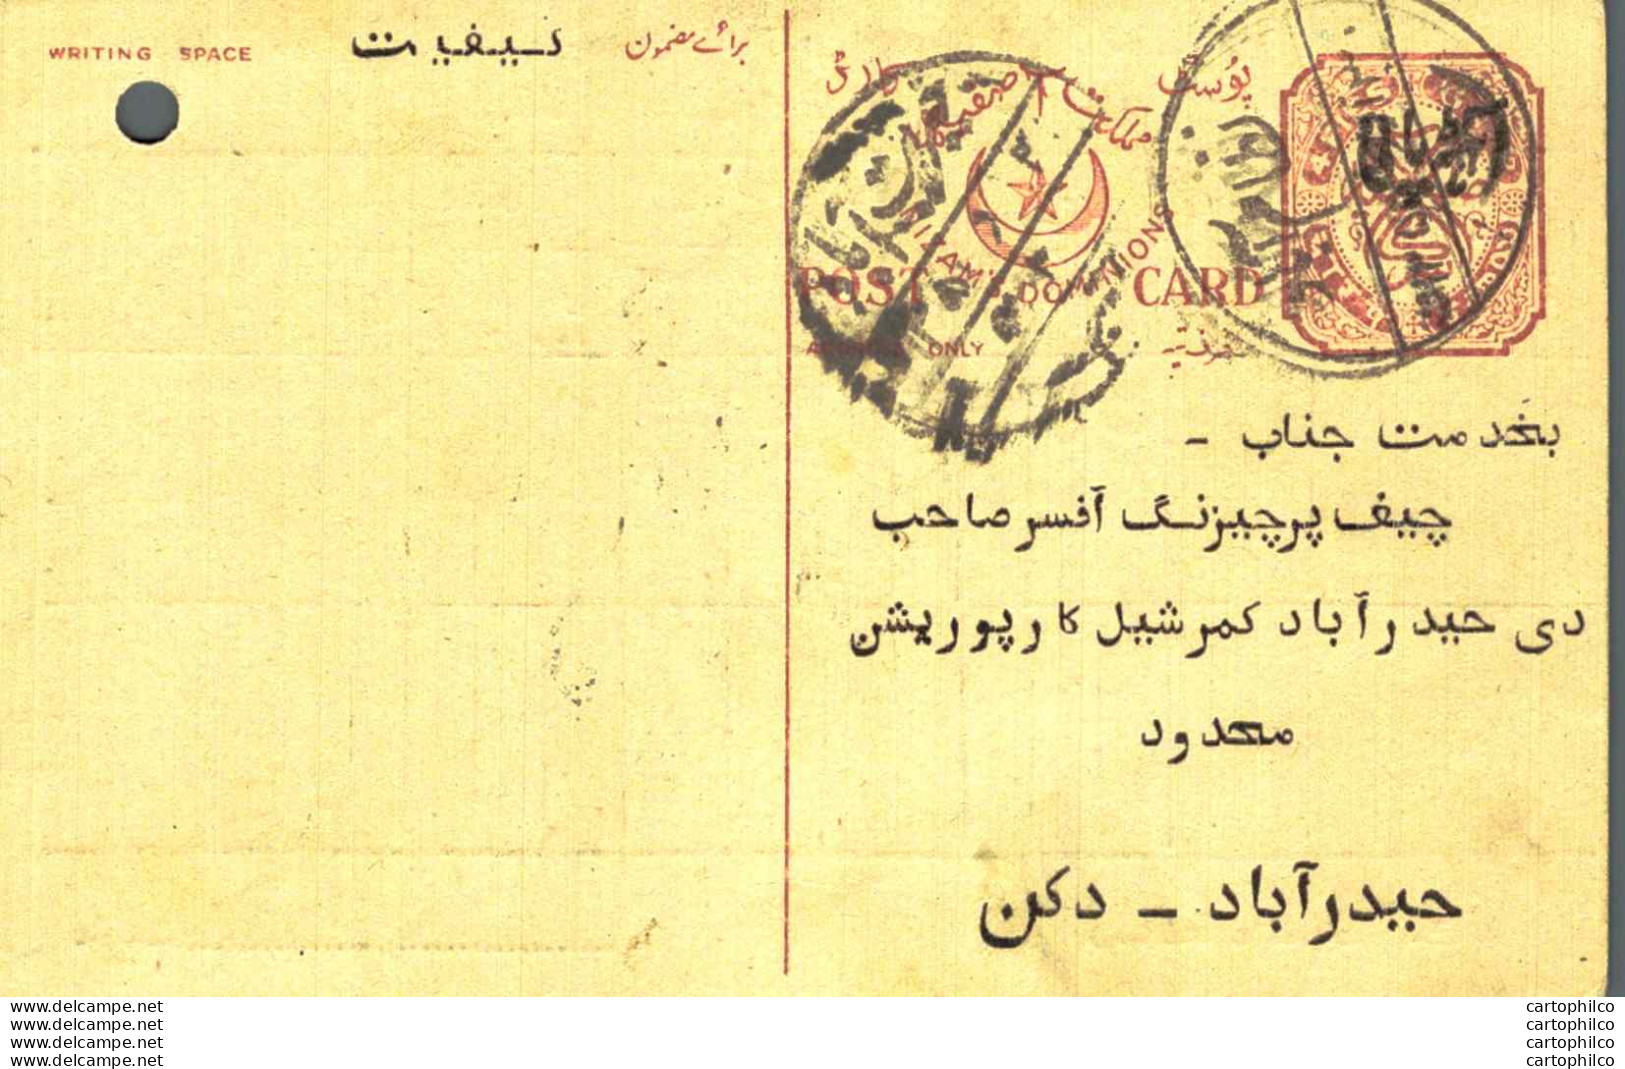 WRITING SPACE
کیفیت
برائے مضمون
پوسٹ
کارڈ
مملکت آصفیہ
NIZAM'S DOMINIONS
POST CARD
ADDRESS ONLY
صرف پتہ
بخدمت جناب -
چیف پرچیزنگ آفسر صاحب
دی حیدرآباد کمرشیل کارپوریشن
محدود
حیدرآباد - دکن
www.delcampe.net
www.delcampe.net
www.delcampe.net
www.delcampe.net
cartophilco
cartophilco
cartophilco
cartophilco